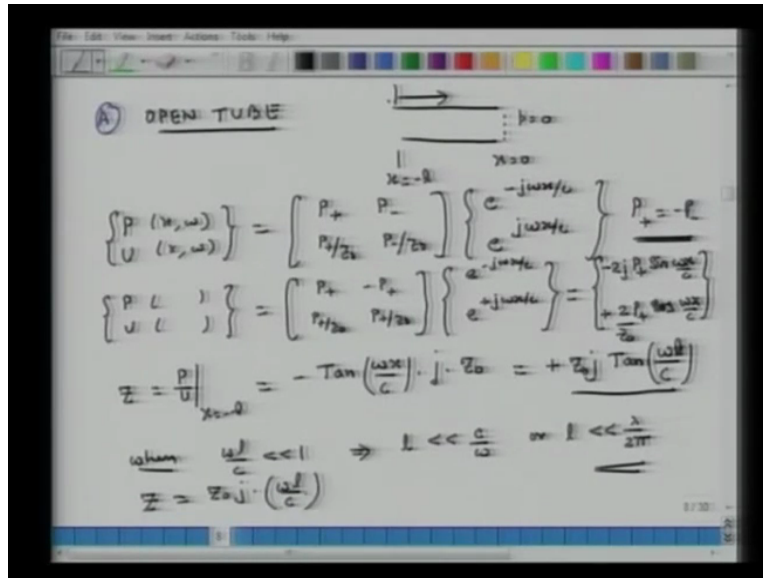 File Edit View Insert Actions Tools Help
Ⓐ OPEN TUBE
p=0
x=-l x=0
{P (x,ω) U (x,ω)} = [P₊ P₋ P₊/Z₀ P₋/Z₀] {e^{-jωx/c} e^{jωx/c}} P₊ = -P₋
{P ( ) U ( )} = [P₊ -P₊ P₊/Z₀ P₊/Z₀] {e^{-jωx/c} e^{+jωx/c}} = {-2j P₊ Sin ωx/c + 2P₊/Z₀ Cos ωx/c}
Z = P/U |x=-l = - Tan (ωx/c) · j · Z₀ = + Z₀j Tan (ωl/c)
when ωl/c <<1 ⇒ l << c/ω or l << λ/2π
Z = Z₀ j · (ωl/c)